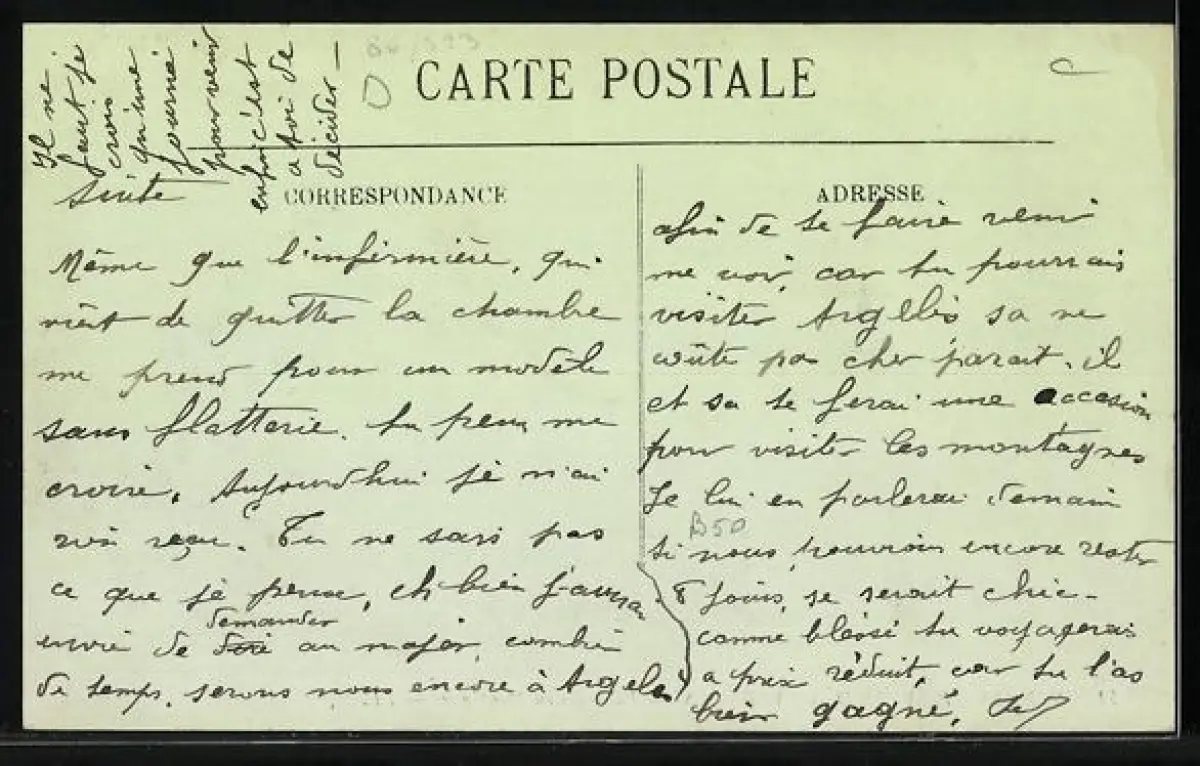 CARTE POSTALE
CORRESPONDANCE
suite
Même que l'infirmière, qui
vient de quitter la chambre
me prend pour un modèle
sans flatterie. tu peux me
croire. Aujourdhui je n'ai
rien reçu. Tu ne sais pas
ce que je pense, eh bien j'aurai
demander
envie de dire au major, combien
de temps, serons nous encore à Argelès
ADRESSE
afin de te faire venir
me voir, car tu pourrais
visiter Argelès sa ne
coûte pas cher parait. il
et sa te ferai une occasion
pour visiter les montagnes
Je lui en parlerai demain
B50
si nous pouvions encore rester
8 jours, se serait chic-
comme blessé tu voyagerais
a prix réduit, car tu l'as
bien gagné.
Il ne
faut je
crois
qu'une
journé
pour venir
enfin c'est
a toi de
décider —